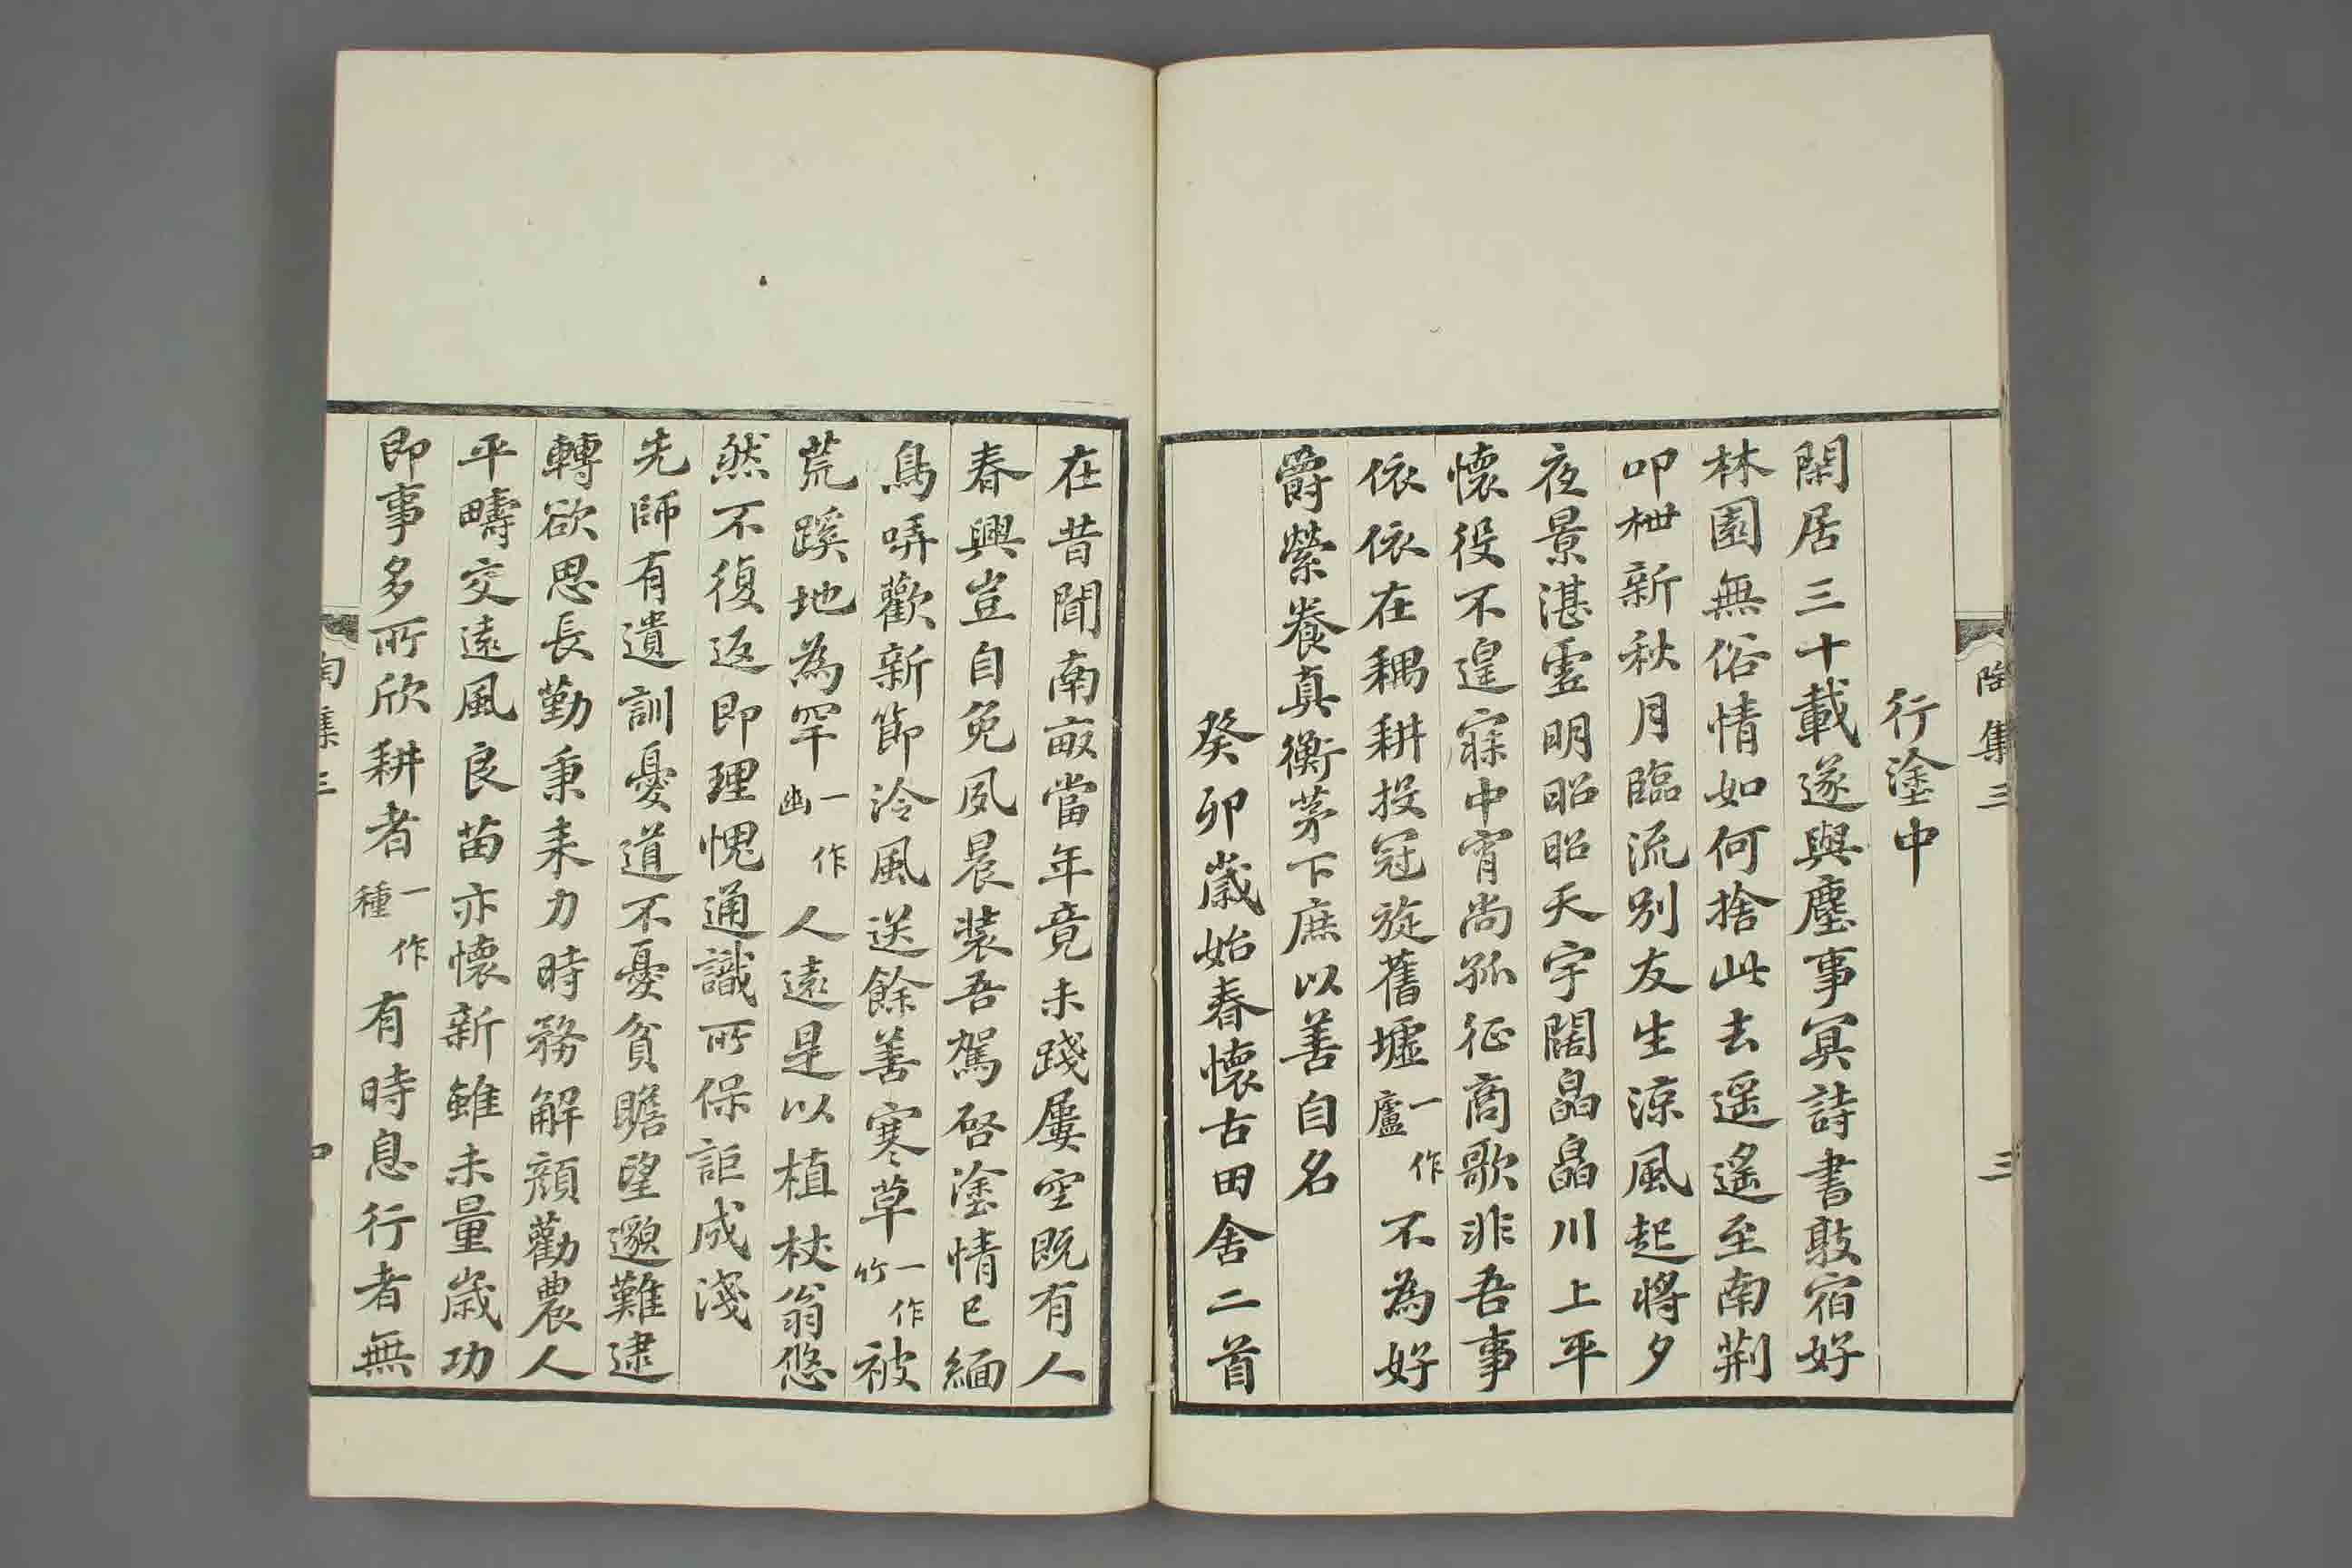 陶集三 三
行塗中
閑居三十載遂與塵事冥詩書敦宿好
林園無俗情如何捨此去遥遥至南荆
叩枻新秋月臨流别友生涼風起將夕
夜景湛虚明昭昭天宇闊晶晶川上平
懷役不遑寐中宵尚孤征商歌非吾事
依依在耦耕投冠旋舊墟一作廬不為好
爵縈養真衡茅下庶以善自名
癸卯歲始春懷古田舍二首
在昔聞南畝當年竟未踐屢空既有人
春興豈自免夙晨装吾駕啓塗情已緬
鳥哢歡新節泠風送餘善寒草一作竹被
荒蹊地為罕一作幽人遠是以植杖翁悠
然不復返即理愧通識所保詎成淺
先師有遺訓憂道不憂貧瞻望邈難逮
轉欲思長勤秉耒力時務解顔勸農人
平疇交遠風良苗亦懷新雖未量歲功
即事多所欣耕者一作種有時息行者無
陶集三